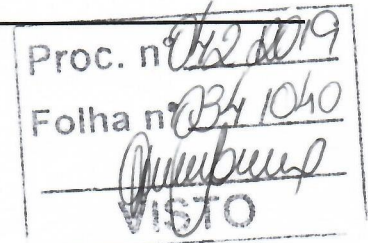 Proc. nº 042 2019
Folha nº 034 1040
VISTO